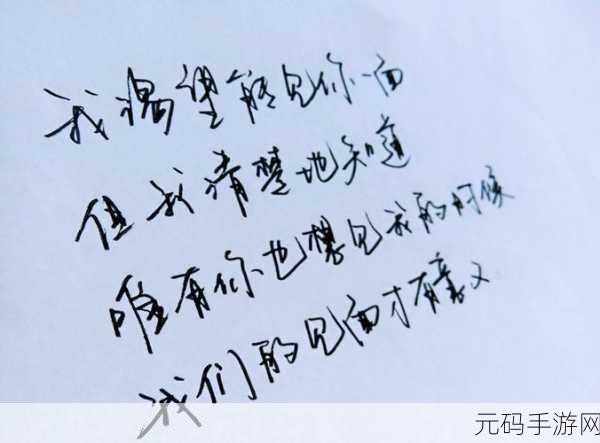 我渴望能见你一面
但我清楚地知道
唯有你也想见我的时候
我们的见面才有意义
元码手游网